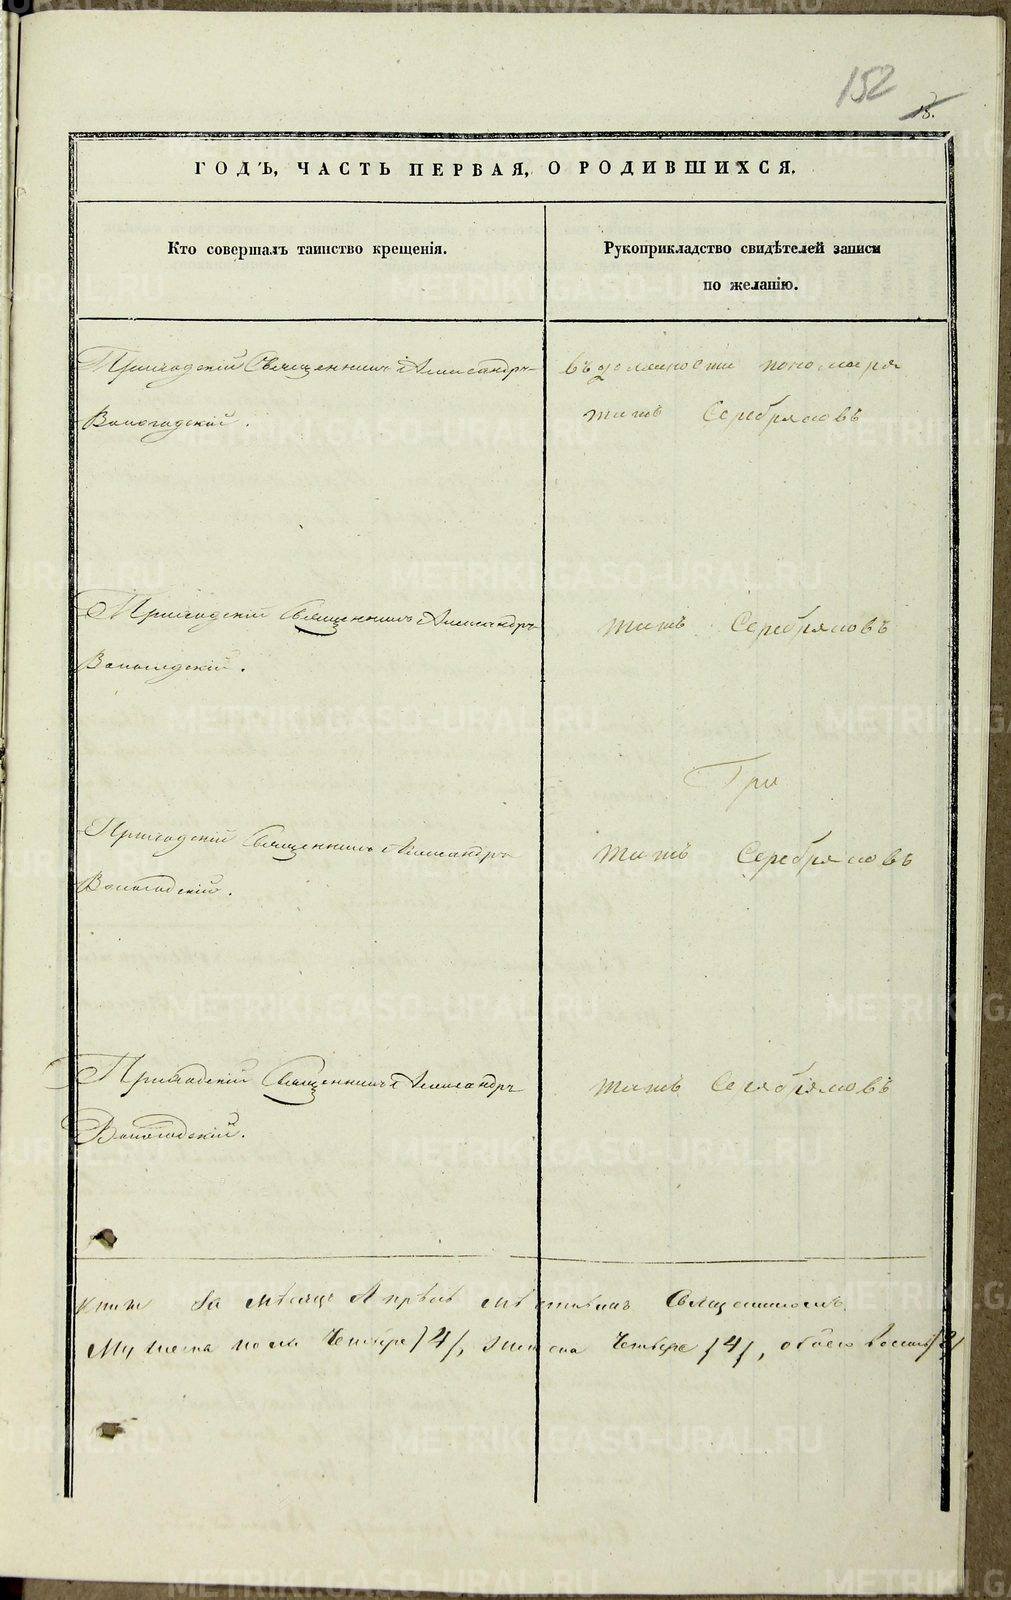 152
18.
ГОДЪ, ЧАСТЬ ПЕРВАЯ, О РОДИВШИХСЯ.
Кто совершалъ таинство крещенія.
Рукоприкладство свидѣтелей записи
по желанію.
Приходскій Священникъ Александръ
Вологодскій.
въ должности пономаря
Титъ Серебряковъ
Приходскій Священникъ Александръ
Вологодскій.
Титъ Серебряковъ
Приходскій Священникъ Александръ
Вологодскій.
Титъ Серебряковъ
Приходскій Священникъ Александръ
Вологодскій.
Титъ Серебряковъ
за мѣсяцъ Священникомъ
Мужеска пола четыре /4/, женска четыре /4/, обоего восемь /8/
METRIKI.GASO-URAL.RU